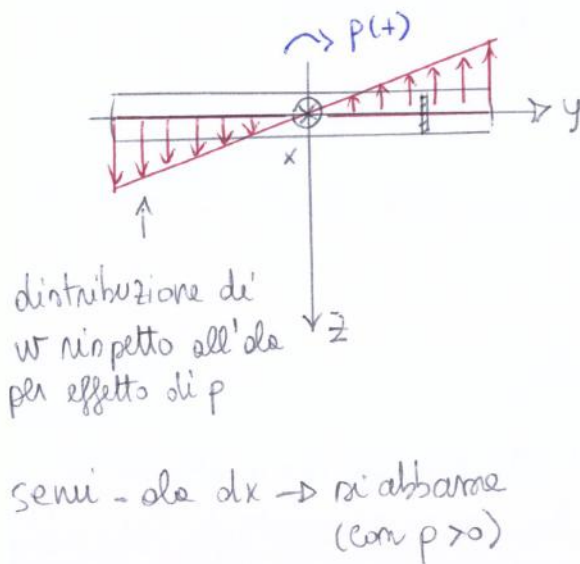 p(+)
y
x
z
distribuzione di
w rispetto all'ala
per effetto di p
semi-ala dx → si abbassa
(con p>0)